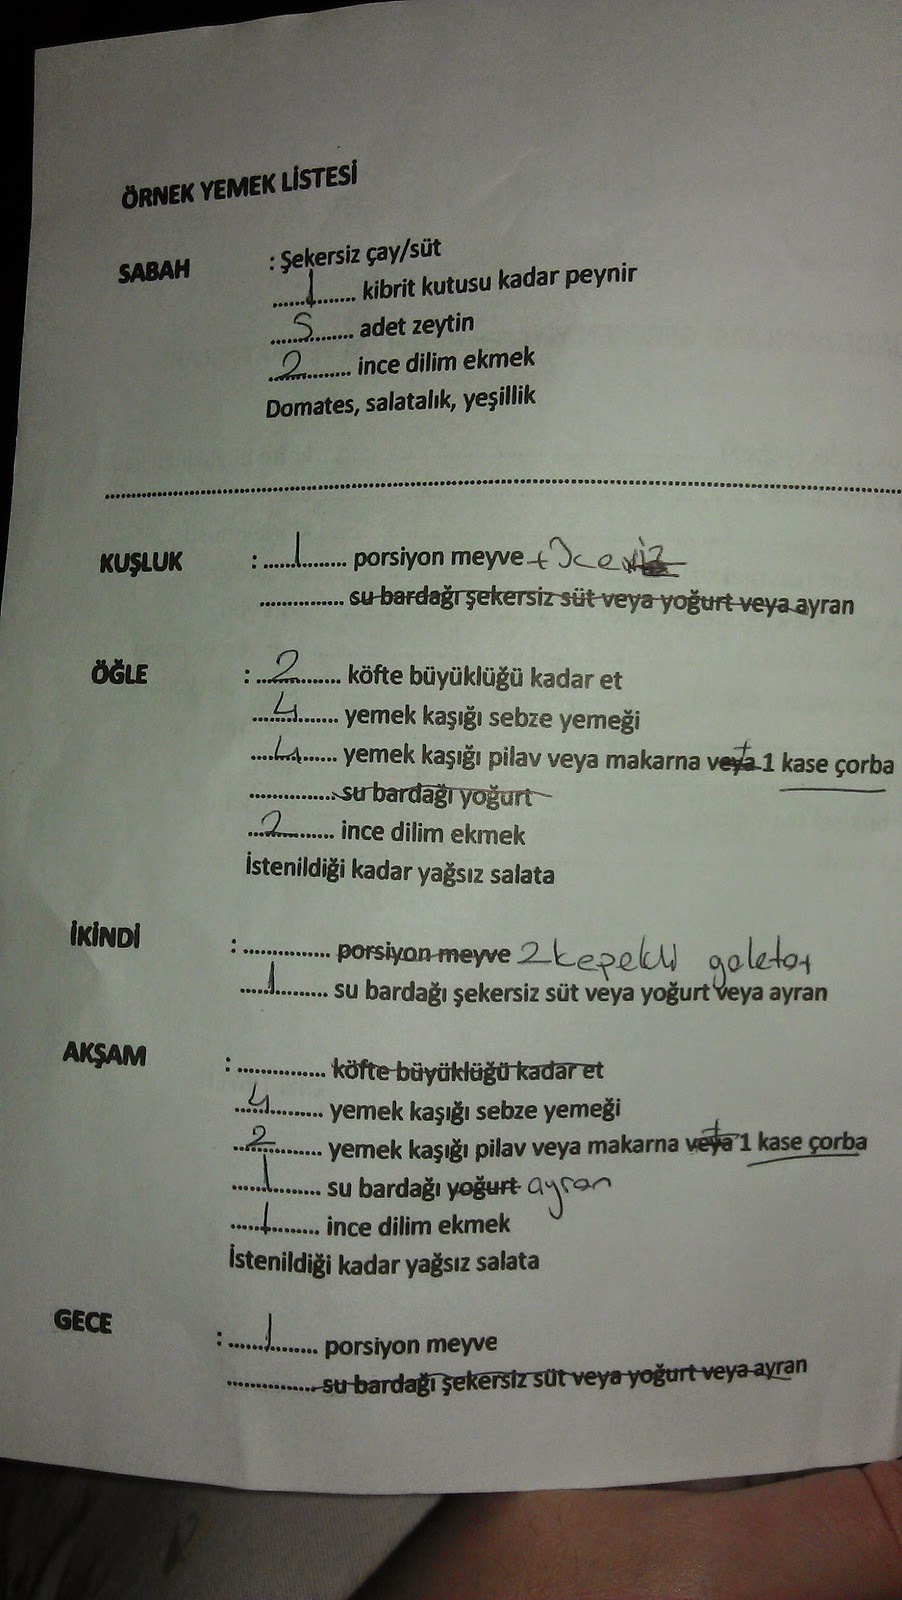 ÖRNEK YEMEK LİSTESİ
SABAH : Şekersiz çay/süt
....1.... kibrit kutusu kadar peynir
....5.... adet zeytin
....2.... ince dilim ekmek
Domates, salatalık, yeşillik
KUŞLUK : ....1.... porsiyon meyve + 3 ceviz
.............. su bardağı şekersiz süt veya yoğurt veya ayran
ÖĞLE : ....2.... köfte büyüklüğü kadar et
....4.... yemek kaşığı sebze yemeği
....4.... yemek kaşığı pilav veya makarna veya + 1 kase çorba
.............. su bardağı yoğurt
....2.... ince dilim ekmek
İstenildiği kadar yağsız salata
İKİNDİ : .............. porsiyon meyve 2 kepekli galeta
....1.... su bardağı şekersiz süt veya yoğurt veya ayran
AKŞAM : .............. köfte büyüklüğü kadar et
....4.... yemek kaşığı sebze yemeği
....2.... yemek kaşığı pilav veya makarna veya + 1 kase çorba
....1.... su bardağı yoğurt ayran
....1.... ince dilim ekmek
İstenildiği kadar yağsız salata
GECE : ....1.... porsiyon meyve
.............. su bardağı şekersiz süt veya yoğurt veya ayran